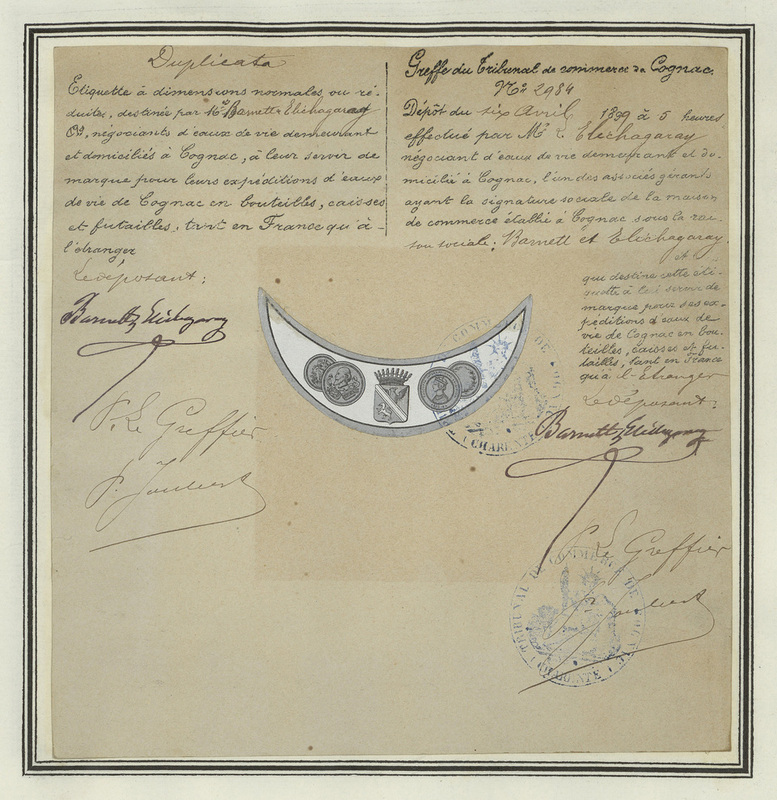 Duplicata
Etiquette à dimensions normales ou ré-
duites, destinée par Mrs Barnett & Elichagaray
& Co, négociants d'eaux de vie demeurant
et domiciliés à Cognac, à leur servir de
marque pour leurs expéditions d'eaux
de vie de Cognac en bouteilles, caisses
et futailles, tant en France qu'à
l'étranger
Le déposant:
Barnett & Elichagaray
P. Le Greffier
P. Joubert
Greffe du Tribunal de commerce de Cognac.
No 2984
Dépôt du six Avril 1899 à 5 heures
effectué par Mr Elichagaray
négociant d'eaux de vie demeurant et do-
micilié à Cognac, l'un des associés gérants
ayant la signature sociale de la maison
de commerce établie à Cognac sous la rai-
son sociale: Barnett et Elichagaray
qui destine cette éti-
quette à lui servir de
marque pour ses ex-
péditions d'eaux de
vie de Cognac en bou-
teilles, caisses et fu-
tailles, tant en France
qu'à l'Etranger
Le déposant:
Barnett & Elichagaray
P. Le Greffier
Joubert
TRIBUNAL DE COMMERCE DE COGNAC
CHARENTE
COMM DE
CHARENTE